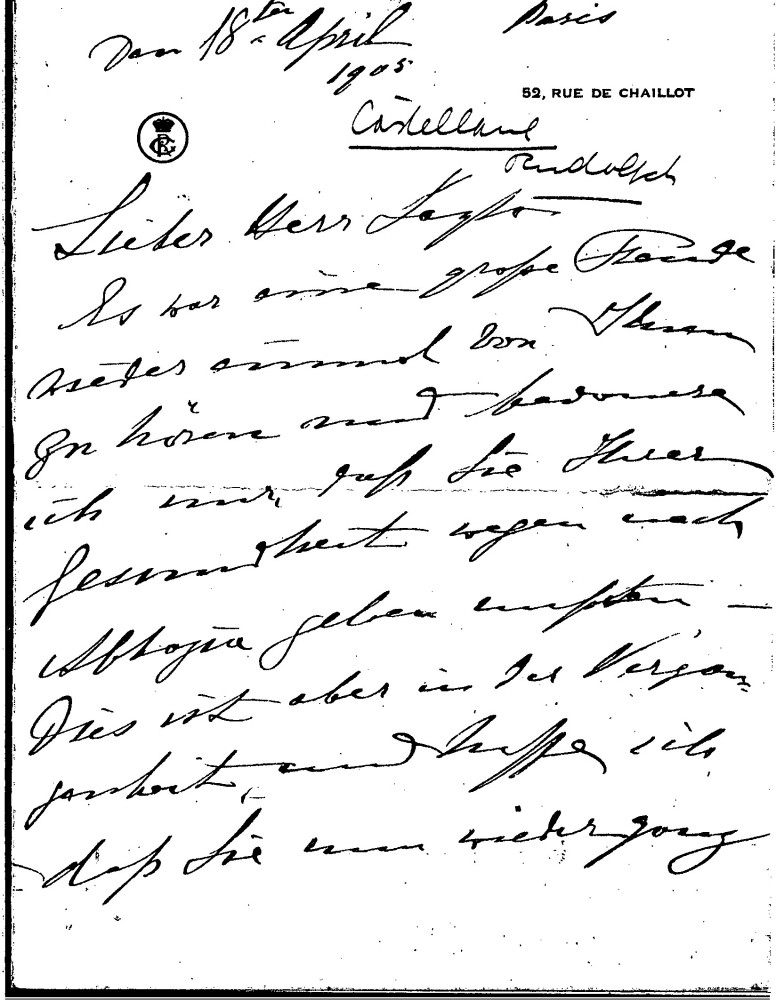 Den 18ten April Paris
1905
52, RUE DE CHAILLOT
Castellane
Rudolph
Lieber Herr
Es war eine große Freude
wieder einmal von Ihnen
zu hören und bedauere
ich nur, daß Sie Ihrer
Gesundheit wegen nach
Abbazia gehen mußten –
Dies ist aber in der Vergan-
genheit, und hoffe ich
daß Sie nun wieder ganz